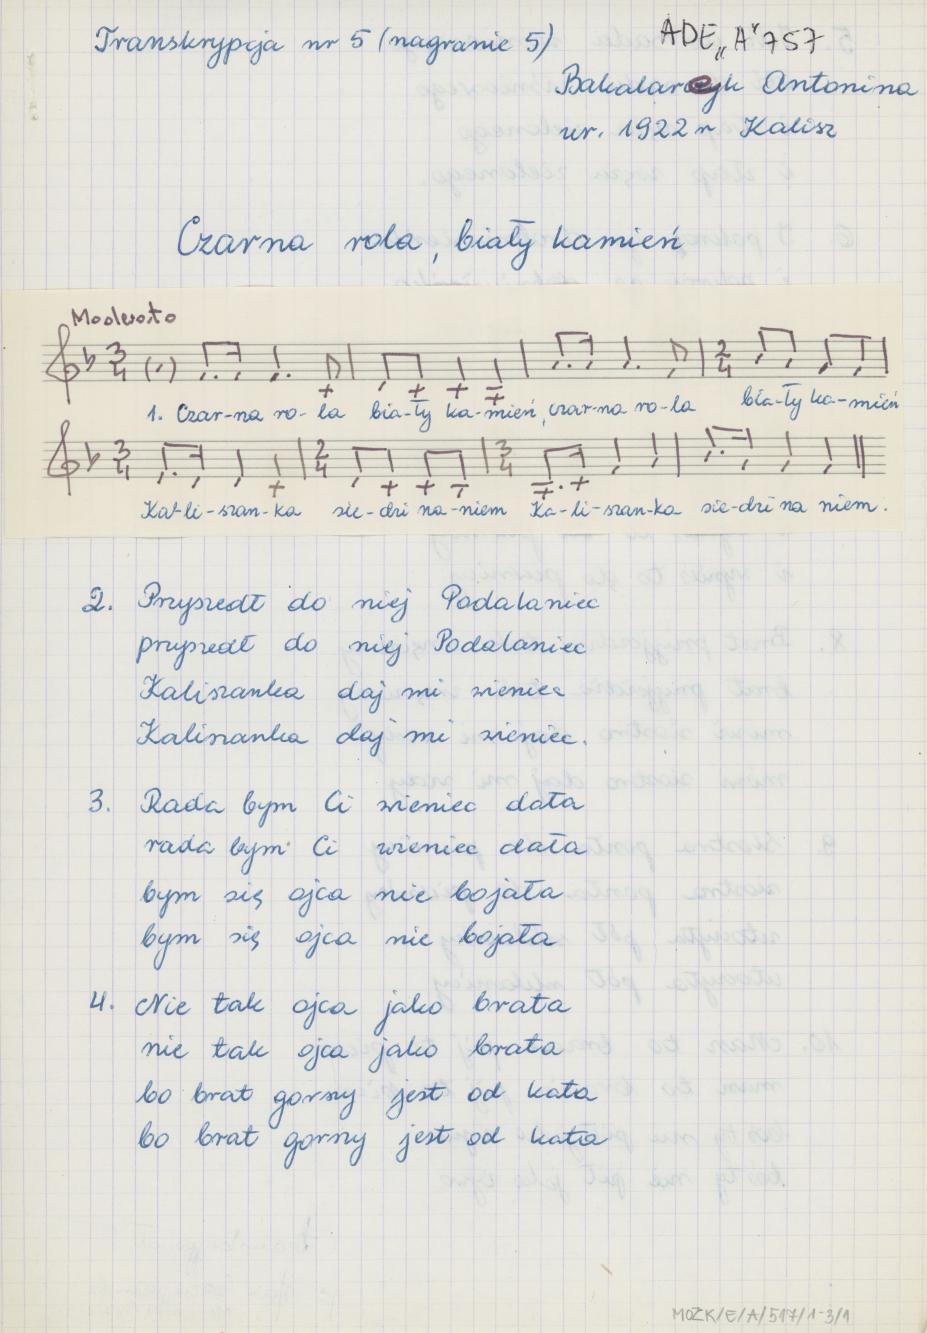 Transkrypcja nr 5 (nagranie 5)
ADE „A" 757
Bakalarczyk Antonina
ur. 1922 r Kalisz
Czarna rola, biały kamień
Moderato
1. Czar-na ro-la bia-ły ka-mień, czar-na ro-la bia-ły ka-mień
Kal-li-szan-ka sie-dzi na-niem Ka-li-szan-ka sie-dzi na niem.
2. Przyszedł do niej Podalaniec
przyszedł do niej Podalaniec
Kaliszanka daj mi wieniec
Kaliszanka daj mi wieniec.
3. Rada bym Ci wieniec dała
rada bym Ci wieniec dała
bym się ojca nie bojała
bym się ojca nie bojała
4. Nie tak ojca jako brata
nie tak ojca jako brata
bo brat gorszy jest od kata
bo brat gorszy jest od kata
MOZK/E/A/517/1-3/1